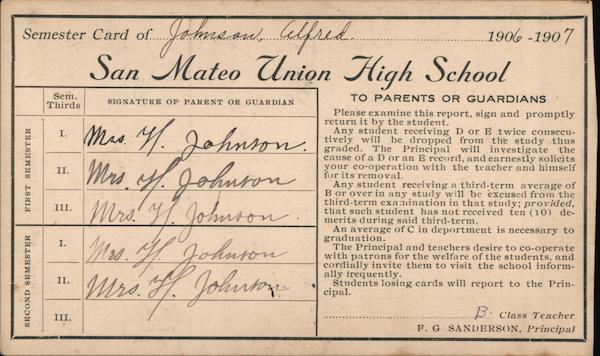 Semester Card of Johnson, Alfred. 1906-1907
San Mateo Union High School
Sem. Thirds
SIGNATURE OF PARENT OR GUARDIAN
FIRST SEMESTER
I. Mrs. H. Johnson.
II. Mrs. H. Johnson
III. Mrs. H. Johnson.
SECOND SEMESTER
I. Mrs. H. Johnson
II. Mrs. H. Johnson
III.
TO PARENTS OR GUARDIANS
Please examine this report, sign and promptly
return it by the student.
Any student receiving D or E twice consecu-
tively will be dropped from the study thus
graded. The Principal will investigate the
cause of a D or an E record, and earnestly solicits
your co-operation with the teacher and himself
for its removal.
Any student receiving a third-term average of
B or over in any study will be excused from the
third-term examination in that study; provided,
that such student has not received ten (10) de-
merits during said third-term.
An average of C in deportment is necessary to
graduation.
The Principal and teachers desire to co-operate
with patrons for the welfare of the students, and
cordially invite them to visit the school inform-
ally frequently.
Students losing cards will report to the Prin-
cipal.
B. Class Teacher
F. G SANDERSON, Principal